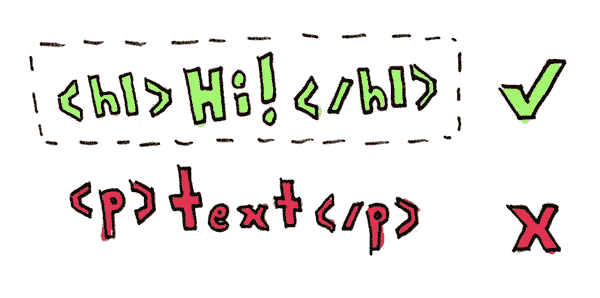 <h1>Hi!</h1>
<p>text</p>